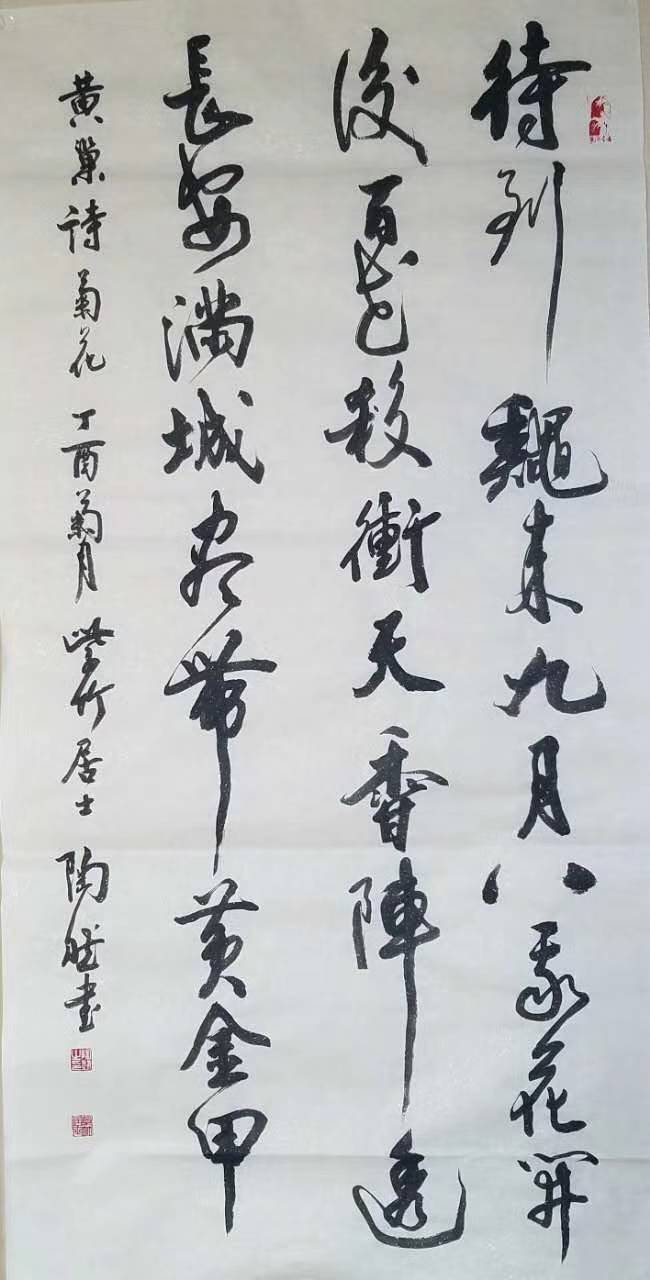 待到龝来九月八我花開
後百花殺衝天香陣透
長安滿城尽帶黄金甲
黄巢詩菊花 丁酉菊月 紫竹居士 陶然書